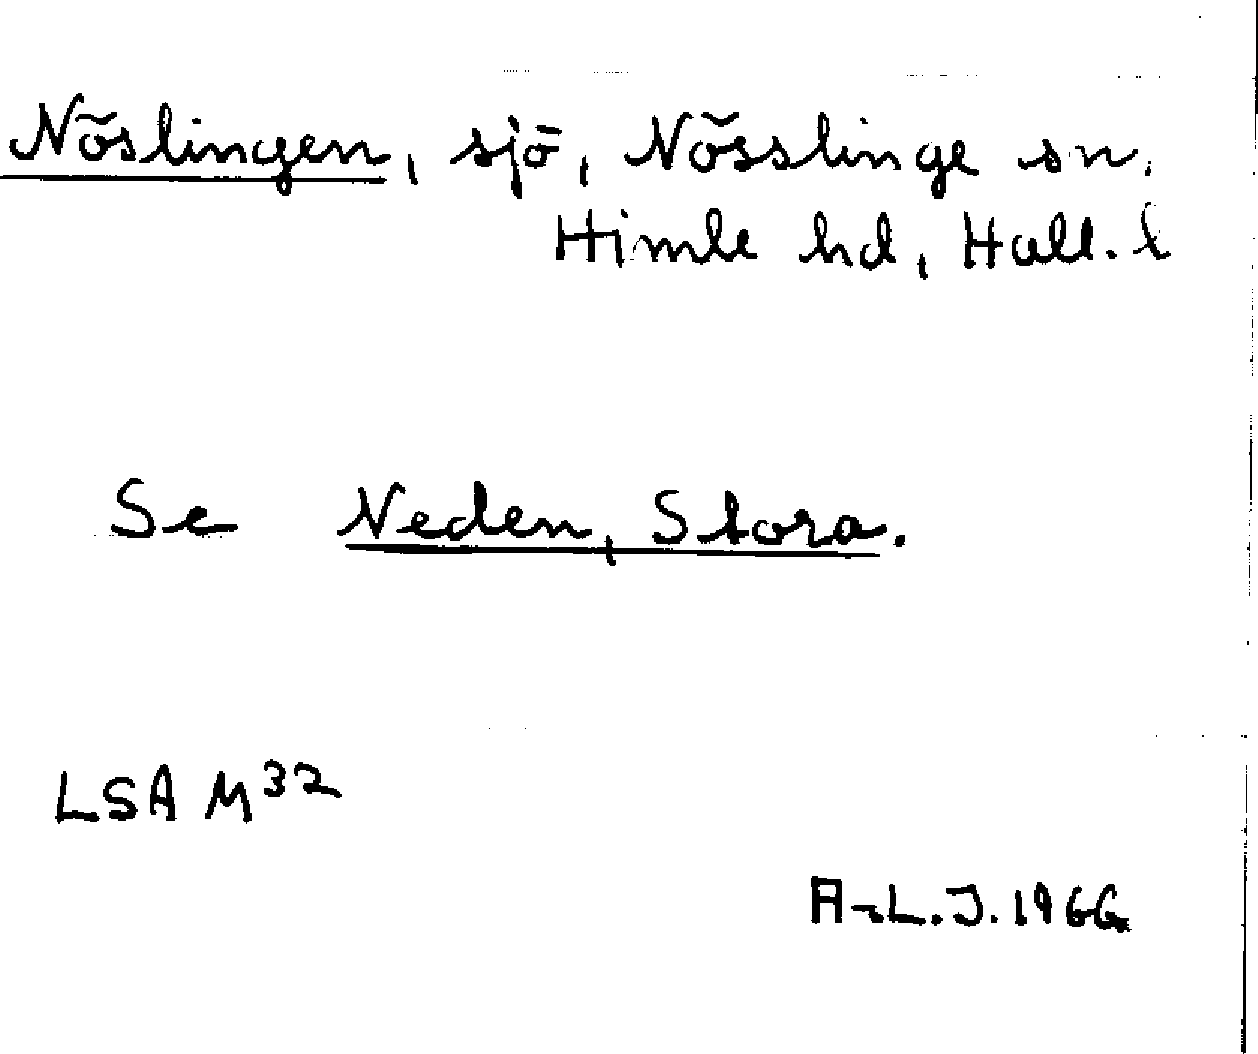 Nöslingen, sjö, Nösslinge sn.
Himle hd, Hall. l
Se Neden, Stora.
LSA M32
A-L.J. 1966